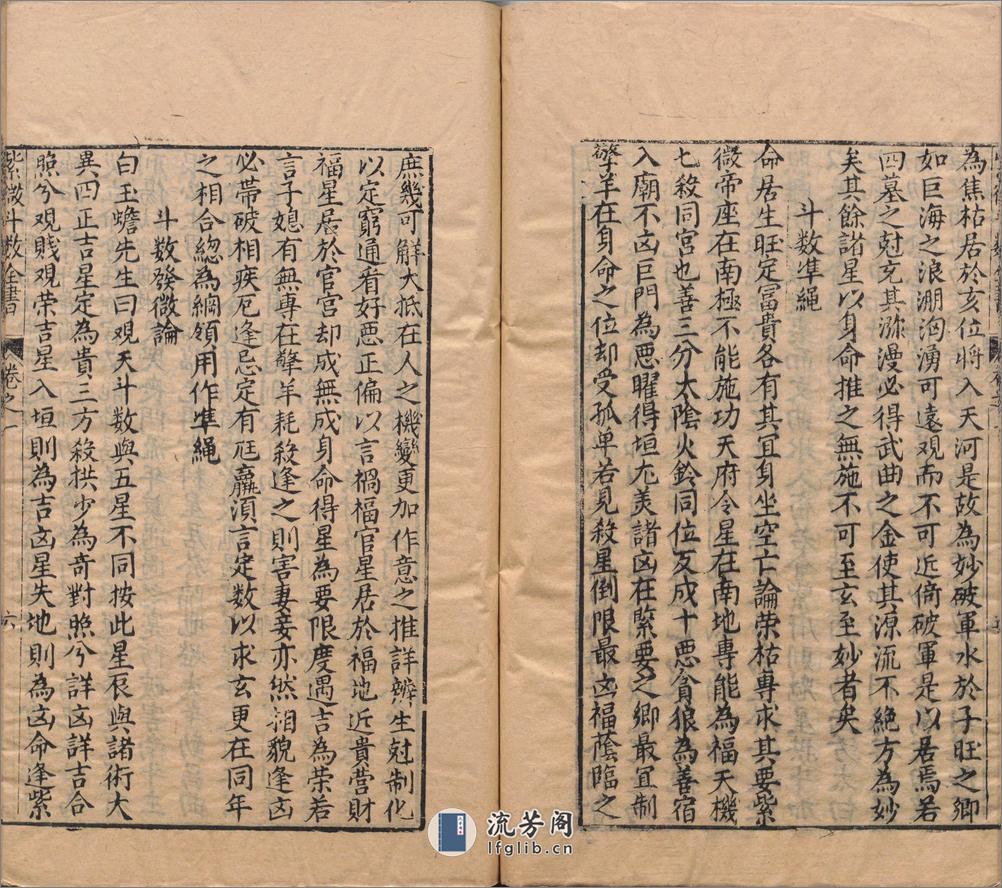 為焦枯居於亥位將入天河是故為妙破軍水於子旺之鄉
如巨海之浪淜洶湧可遠觀而不可近倚破軍是以居焉若
四墓之尅充其瀰漫必得武曲之金使其源流不絕方為妙
矣其餘諸星以身命推之無施不可至玄至妙者矣
斗數準繩
命居生旺定冨貴各有其宜身坐空亡論荣枯專求其要紫
微帝座在南極不能施功天府令星在南地專能為福天機
七殺同宮也善三分太陰火鈴同位反成十惡貪狼為善宿
入廟不凶巨門為惡曜得垣尤美諸凶在緊要之鄉最宜制
擎羊在身命之位却受孤单若見殺星倒限最凶福蔭臨之
庶幾可解大抵在人之機變更加作意之推詳辨生尅制化
以定窮通看好惡正偏以言禍福官星居於福地近貴营財
福星居於官宮却成無成身命得星為要限度遇吉為荣若
言子媳有無專在擎羊耗殺逢之則害妻妾亦然相貌逢凶
必帶破相疾厄逢忌定有尫羸須言定數以求玄更在同年
之相合緫為綱領用作準繩
斗數發微論
白玉蟾先生曰觀天斗數與五星不同按此星辰與諸術大
異四正吉星定為貴三方殺拱少為奇對照兮詳凶詳吉合
照兮观賤観荣吉星入垣則為吉凶星失地則為凶命逢紫
紫微斗数全書
卷之一
六
流芳阁
lfglib.cn